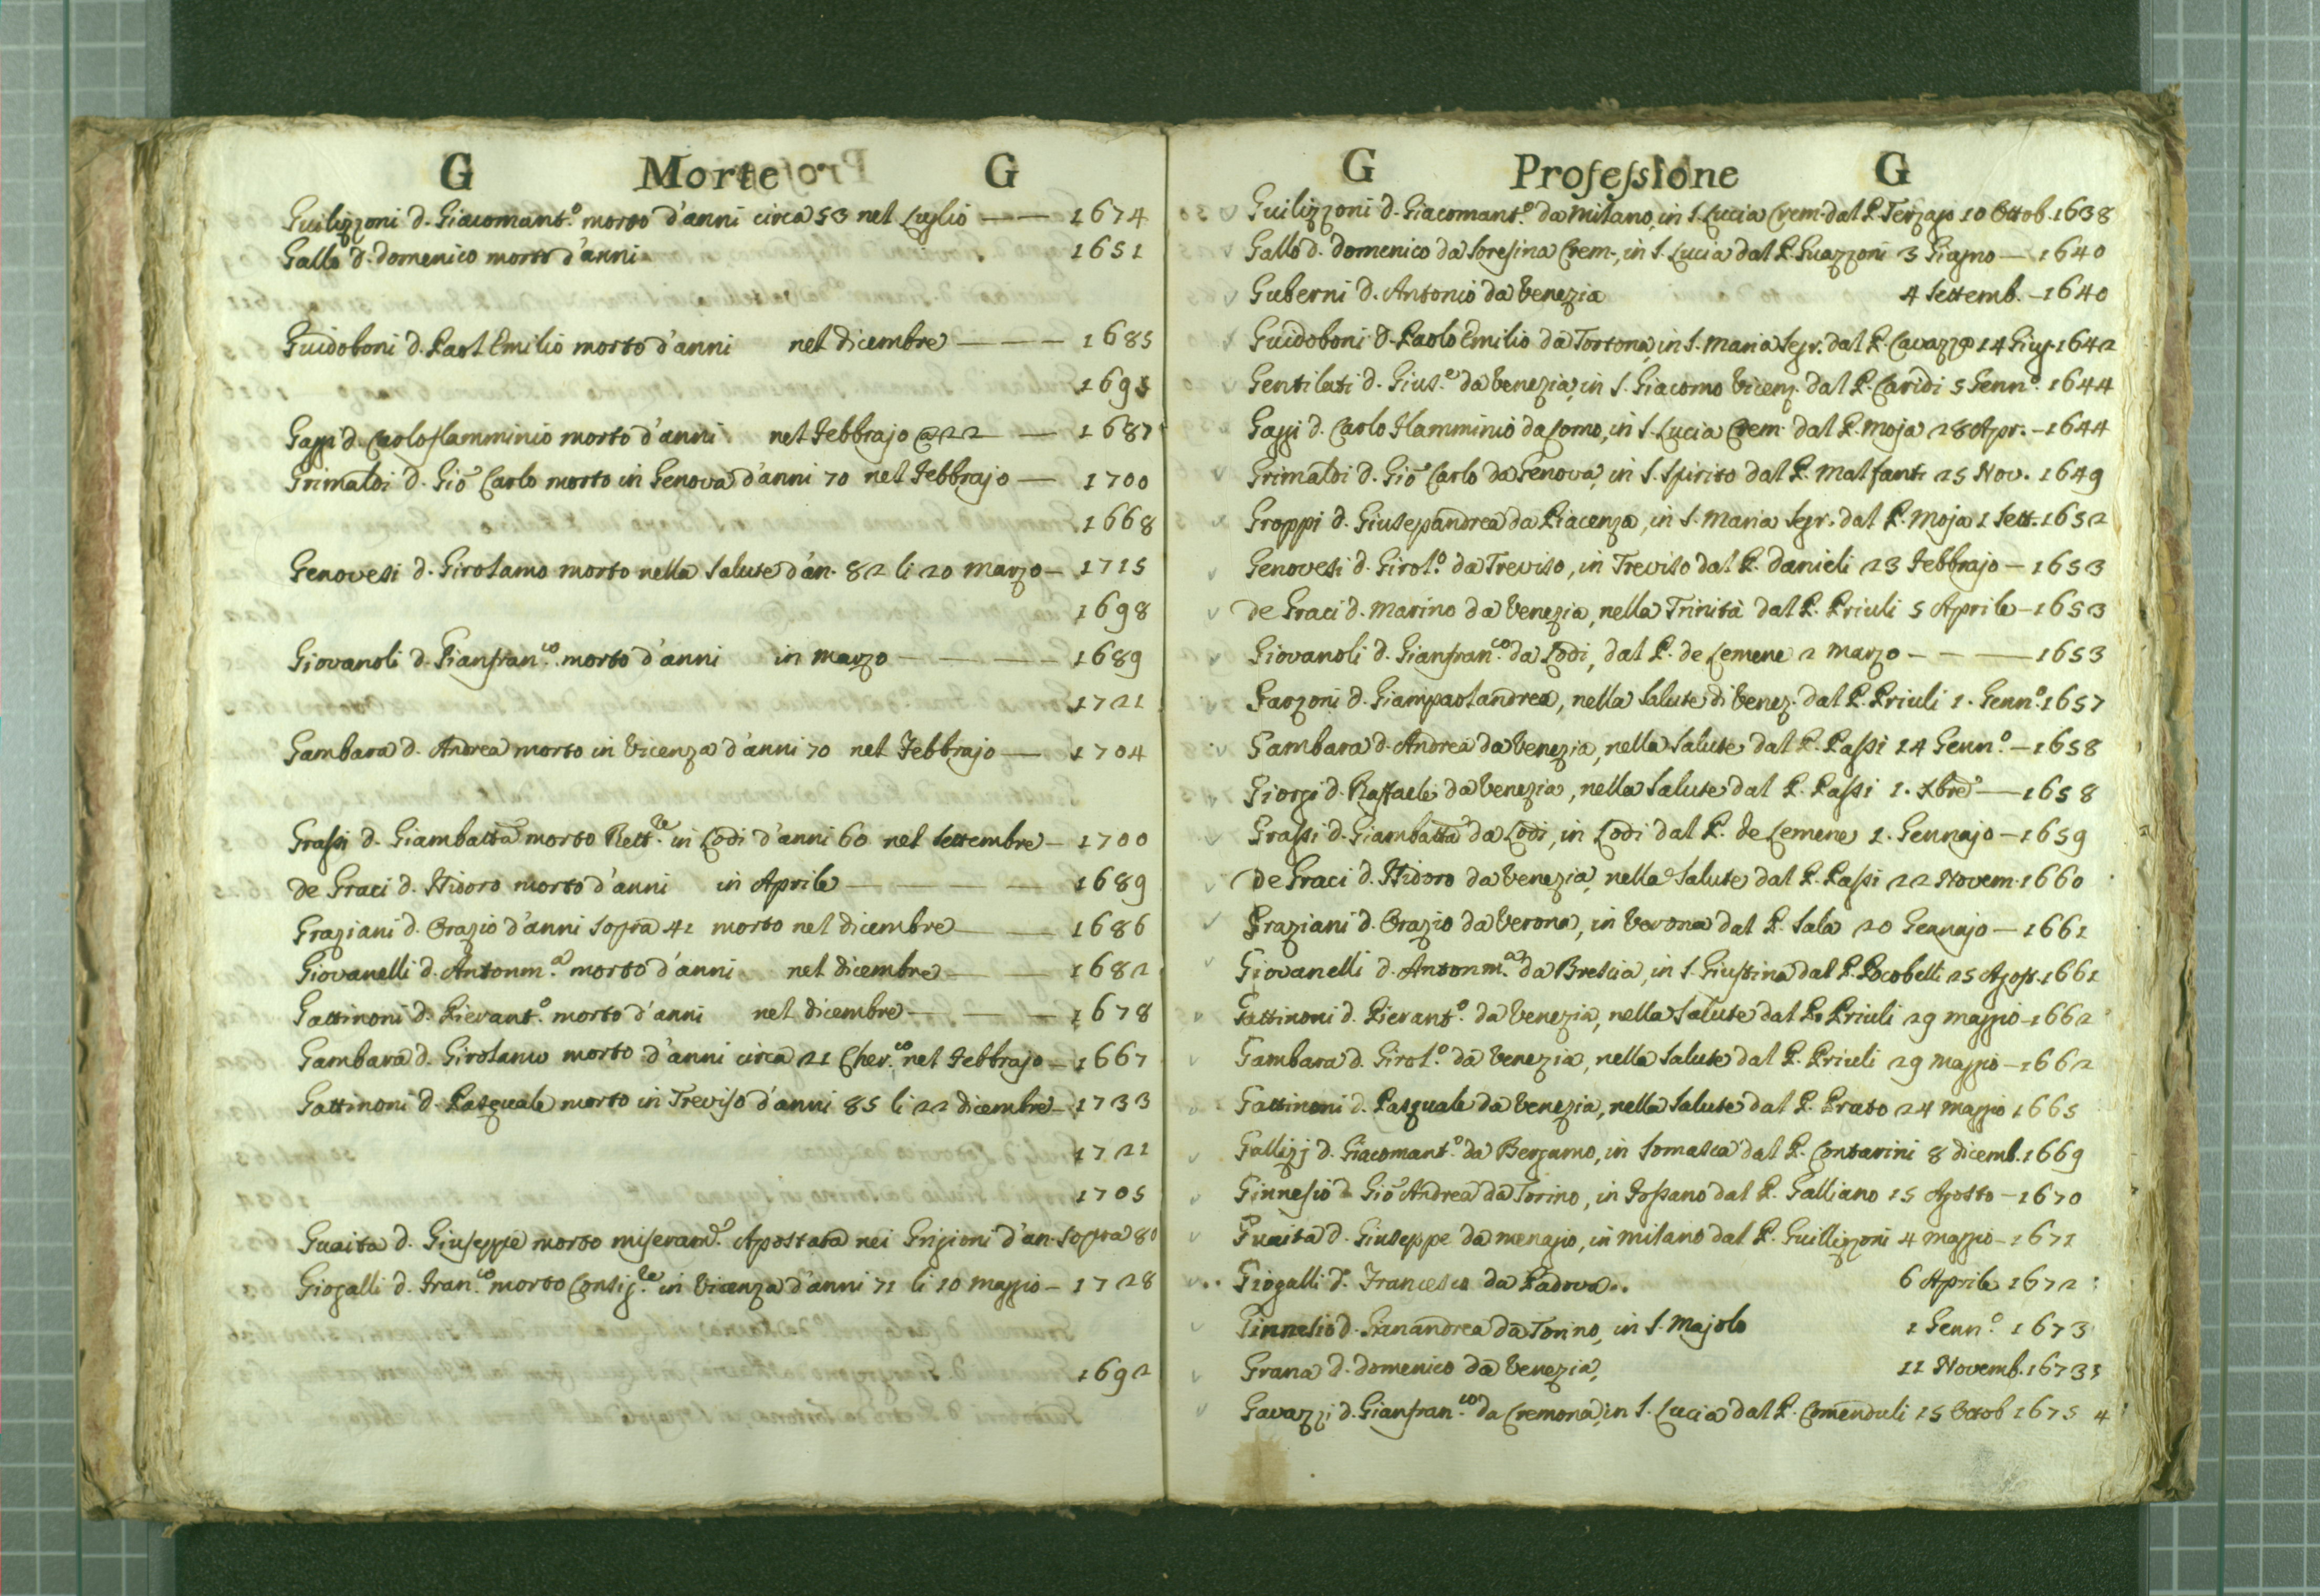 G Morte G
Guilizzoni d. Giacomant.º morto d'anni circa 53 nel Luglio — 1674
Gallo d. Domenico morto d'anni 1651
Guidoboni d. Paol Emilio morto d'anni nel Dicembre — 1685
1695
Gaggi d. Carlo Flamminio morto d'anni nel Febbrajo @22 — 1687
Grimaldi d. Gio Carlo morto in Genova d'anni 70 nel Febbrajo — 1700
1668
Genovesi d. Girolamo morto nella Salute d'an. 82 li 20 Marzo — 1715
1698
Giovanoli d. Gianfran.co morto d'anni in Marzo — 1689
1721
Gambara d. Andrea morto in Vicenza d'anni 70 nel Febbrajo — 1704
Grassi d. Giambatta morto Rett.re in Lodi d'anni 60 nel Settembre — 1700
de Graci d. Isidoro morto d'anni in Aprile — 1689
Graziani d. Orazio d'anni sopra 41 morto nel Dicembre — 1686
Giovanelli d. Antonm.a morto d'anni nel Dicembre — 1682
Gattinoni d. Pierant.º morto d'anni nel Dicembre — 1678
Gambara d. Girolamo morto d'anni circa 21 Cher.co nel Febbrajo — 1667
Gattinoni d. Pasquale morto in Treviso d'anni 85 li 22 Dicembre — 1733
1721
1705
Guaita d. Giuseppe morto miseram.e Apostata nei Grigioni d'an. sopra 80
Giogalli d. Fran.co morto Consig.re in Vicenza d'anni 71 li 10 Maggio — 1728
1692
G Professione G
Guilizzoni d. Giacomant.º da Milano, in S. Lucia Crem. dal P. Terzago 10 Ottob. 1638
Gallo d. Domenico da Soresina Crem., in S. Lucia dal P. Guazzoni 3 Giugno — 1640
Guberni d. Antonio da Venezia 4 Settemb. — 1640
Guidoboni d. Paolo Emilio da Tortona, in S. Maria Segr. dal P. Cavazzo 14 Giug. 1642
Gentilati d. Gius.e da Venezia, in S. Giacomo Vicenz. dal P. Caridi 5 Genn.º 1644
Gaggi d. Carlo Flamminio da Como, in S. Lucia Crem. dal P. Moja 28 Apr. — 1644
Grimaldi d. Gio Carlo da Genova, in S. Spirito dal P. Malfanti 25 Nov. 1649
Groppi d. Giusepandrea da Piacenza, in S. Maria Segr. dal P. Moja 1 Sett. 1652
Genovesi d. Girol.º da Treviso, in Treviso dal P. Danieli 23 Febbrajo — 1653
de Graci d. Marino da Venezia, nella Trinità dal P. Priuli 5 Aprile — 1653
Giovanoli d. Gianfran.co da Lodi, dal P. de Lemene 2 Marzo — 1653
Garzoni d. Giampaolandrea, nella Salute di Venez. dal P. Priuli 1. Genn.º 1657
Gambara d. Andrea da Venezia, nella Salute dal P. Passi 14 Genn.º — 1658
Giorgi d. Raffaele da Venezia, nella Salute dal P. Passi 1. Xbre — 1658
Grassi d. Giambatta da Lodi, in Lodi dal P. de Lemene 1. Gennajo — 1659
De Graci d. Isidoro da Venezia, nella Salute dal P. Passi 22 Novem. 1660
Graziani d. Orazio da Verona, in Verona dal P. Sala 20 Gennajo — 1661
Giovanelli d. Antonm.a da Brescia, in S. Giustina dal P. Pocobelli 25 Agost. 1661
Gattinoni d. Pierant.º da Venezia, nella Salute dal P. Priuli 29 Maggio — 1662
Gambara d. Girol.º da Venezia, nella Salute dal P. Priuli 29 Maggio — 1662
Gattinoni d. Pasquale da Venezia, nella Salute dal P. Prato 24 Maggio 1665
Gallizj d. Giacomant.º da Bergamo, in Somasca dal P. Contarini 8 Dicemb. 1669
Ginnesio d. Gio Andrea da Torino, in Fossano dal P. Galliano 15 Agosto — 1670
Guaita d. Giuseppe da Menagio, in Milano dal P. Guillizzoni 4 Maggio — 1671
Giogalli d. Francesco da Padova.. 6 Aprile 1672
Ginnesio d. Gianandrea da Torino, in S. Majolo 1 Genn.º 1673
Grana d. Domenico da Venezia, 11 Novemb. 1673
Gavazzi d. Gianfran.co da Cremona, in S. Lucia dal P. Comenduli 15 Ottob 1675 4